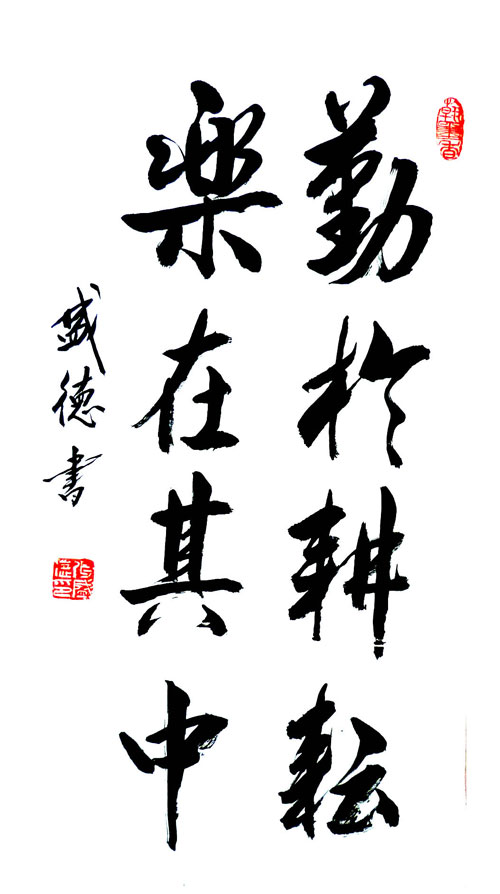 勤於耕耘
楽在其中
盛德書